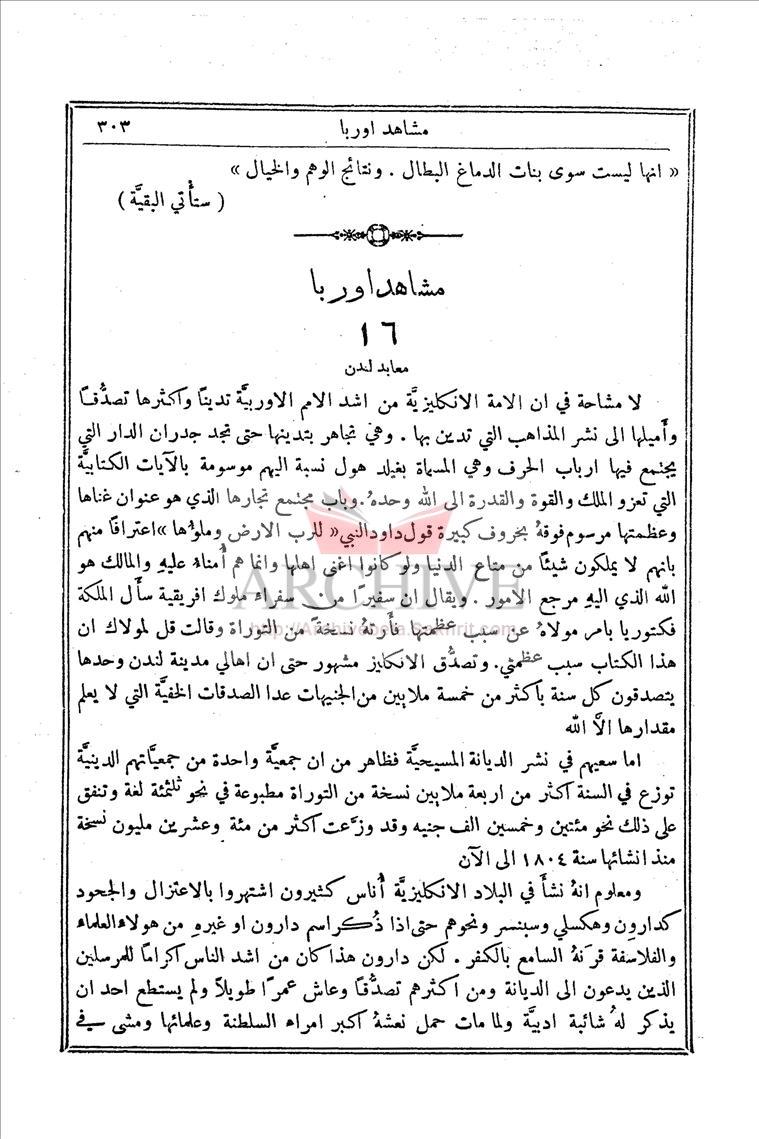 مشاهد اوربا ٣٠٣
« انها ليست سوى بنات الدماغ البطال . ونتائج الوهم والخيال »
( ستأتي البقيَّة )
مشاهد اوربا
١٦
معابد لندن
لا مشاحة في ان الامة الانكليزيَّة من اشد الامم الاوربيَّة تدينًا واكثرها تصدُّقًا
وأَميلها الى نشر المذاهب التي تدين بها . وهي تجاهر بتدينها حتى تجد جدران الدار التي
يجتمع فيها ارباب الحرف وهي المسماة بغيلد هول نسبة اليهم موسومة بالآيات الكتابيَّة
التي تعزو الملك والقوة والقدرة الى الله وحدهُ . وباب مجتمع تجارها الذي هو عنوان غناها
وعظمتها مرسوم فوقهُ بحروف كبيرة قول داود النبي « للرب الارض وملؤها » اعترافًا منهم
بانهم لا يملكون شيئًا من متاع الدنيا ولو كانوا اغنى اهلها وانما هم أُمناءُ عليهِ والمالك هو
الله الذي اليهِ مرجع الامور . ويقال ان سفيرًا من سفراء ملوك افريقية سأَل الملكة
فكتوريا بامر مولاهُ عن سبب عظمتها فأَرتهُ نسخةً من التوراة وقالت قل لمولاك ان
هذا الكتاب سبب عظمتي . وتصدُّق الانكليز مشهور حتى ان اهالي مدينة لندن وحدها
يتصدقون كل سنة باكثر من خمسة ملايين من الجنيهات عدا الصدقات الخفيَّة التي لا يعلم
مقدارها الَّا الله
اما سعيهم في نشر الديانة المسيحيَّة فظاهر من ان جمعيَّة واحدة من جمعيَّاتهم الدينيَّة
توزع في السنة اكثر من اربعة ملايين نسخة من التوراة مطبوعة في نحو ثلثمئة لغة وتنفق
على ذلك نحو مئتين وخمسين الف جنيه وقد وزَّعت اكثر من مئة وعشرين مليون نسخة
منذ انشائها سنة ١٨٠٤ الى الآن
ومعلوم انهُ نشأَ في البلاد الانكليزيَّة أُناس كثيرون اشتهروا بالاعتزال والجحود
كدارون وهكسلي وسبنسر ونحوهم حتى اذا ذُكر اسم دارون او غيرهِ من هولاء العلماء
والفلاسفة قرنهُ السامع بالكفر . لكن دارون هذا كان من اشد الناس اكرامًا للمرسلين
الذين يدعون الى الديانة ومن اكثرهم تصدُّقًا وعاش عمرًا طويلًا ولم يستطع احد ان
يذكر لهُ شائبة ادبيَّة ولما مات حمل نعشهُ اكبر امراء السلطنة وعلمائها ومشى في
ARCHIVE
http://Archivebeta.Sakhrit.com